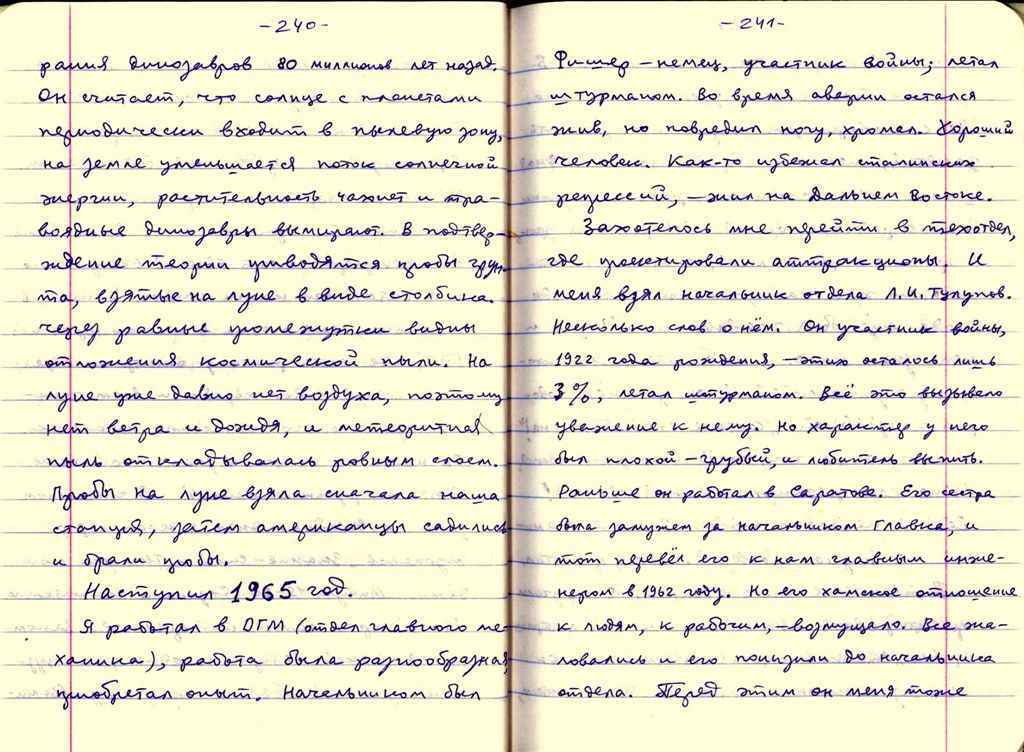 -240-
рания динозавров 80 миллионов лет назад.
Он считает, что солнце с планетами
периодически входит в пылевую зону,
на земле уменьшается поток солнечной
энергии, растительность чахнет и тра-
воядные динозавры вымирают. В подтвер-
ждение теории приводятся пробы грун-
та, взятые на луне в виде столбика.
через равные промежутки видны
отложения космической пыли. На
луне уже давно нет воздуха, поэтому
нет ветра и дождя, и метеоритная
пыль откладывалась ровным слоем.
Пробы на луне взяла сначала наша
станция, затем американцы садились
и брали пробы.
Наступил 1965 год.
Я работал в ОГМ (отдел главного ме-
ханика), работа была разнообразная,
приобретал опыт. Начальником был
-241-
Фишер – немец, участник войны; летал
штурманом. Во время аварии остался
жив, но повредил ногу, хромал. Хороший
человек. Как-то избежал сталинских
репрессий, – жил на Дальнем Востоке.
Захотелось мне перейти в техотдел,
где проектировали аттракционы. И
меня взял начальник отдела Л.И.Тулупов.
Несколько слов о нём. Он участник войны,
1922 года рождения, – этих осталось лишь
3%, летал штурманом. Всё это вызывало
уважение к нему. Но характер у него
был плохой – грубый, и любитель выпить.
Раньше он работал в Саратове. Его сестра
была замужем за начальником Главка, и
тот перевёл его к нам главным инже-
нером в 1962 году. Но его хамское отношение
к людям, к рабочим, – возмущало. Все жа-
ловались и его понизили до начальника
отдела. Перед этим он меня тоже